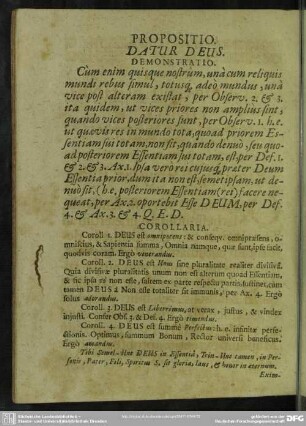 PROPOSITIO.
DATUR DEUS.
DEMONSTRATIO.
Cùm enim quisque nostrûm, unà cum reliquis
mundi rebus simul, totusq; adeo mundus, unâ
vice post alteram existat, per Observ. 2. & 3.
ita quidem, ut vices priores non ampliùs sint,
quando vices posteriores sunt, per Observ. 1. h.e.
ut quovis res in mundo tota, quoad priorem Es-
sentiam sui totam, non sit, quando denuò, seu quo-
ad posteriorem Essentiam sui totam, est, per Def. 1.
& 2. & 3. Ax. 1. Ipsa verò rei cujusq; præter Deum
Essentia prior, dum ita non est, semetipsam, ut de-
nuò sit, (h.e. posteriorem Essentiam (rei) facere ne-
queat, per Ax. 2. oportebit Esse DEUM, per Def.
4. & Ax. 3. & 4. Q. E. D.
COROLLARIA.
Coroll. 1. DEUS est omnipotens: & conseqv. omnipræsens, o-
mniscius, & Sapientia summa, Omnia namque, quæ sunt, ipse facit,
quodvis coram. Ergò venerandus.
Coroll. 2. DEUS est Unus sine pluralitate realiter divisivâ.
Quia divisivæ pluralitatis unum non est alterum quoad Essentiam,
& sic ipsa ei non esse, saltem ex parte respectu partis, suffineret, cum
tamen DEUS à Non esse totaliter sit immunis, per Ax. 4. Ergò
solus adorandus.
Coroll. 3. DEUS est Liberrimus, ut vexax, justus, & vindex
injusti. Confer Obs. 3. & Def. 4. Ergò timendus.
Coroll. 4. DEUS est summè Perfectus: h.e. infinitæ perfe-
ctionis. Optimus, summum Bonum, Rector universi beneficus.
Ergò amandus.
Tibi Omnet-Uno DEUS in Essentiâ, Trin-Uno tamen, in Per-
sonis, Pater, Fili, Spiritus S. sit gloria, laus, & honor in æternum,
Exim-